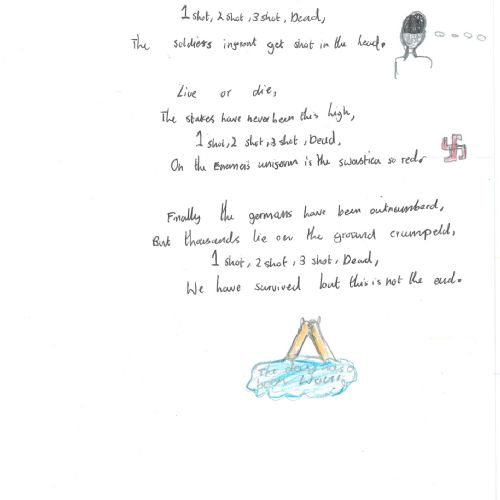 1 shot, 2 shot, 3 shot, Dead,
The soldiers infront get shot in the head.
Live or die,
The stakes have never been this high,
1 shot, 2 shot, 3 shot, Dead.
On the Enemeis uniform is the swastica so red.
Finally the germans have been outnumberd,
But thousands lie on the ground crumpeld,
1 shot, 2 shot, 3 shot, Dead,
We have survived but this is not the end.
The day has
been Won!